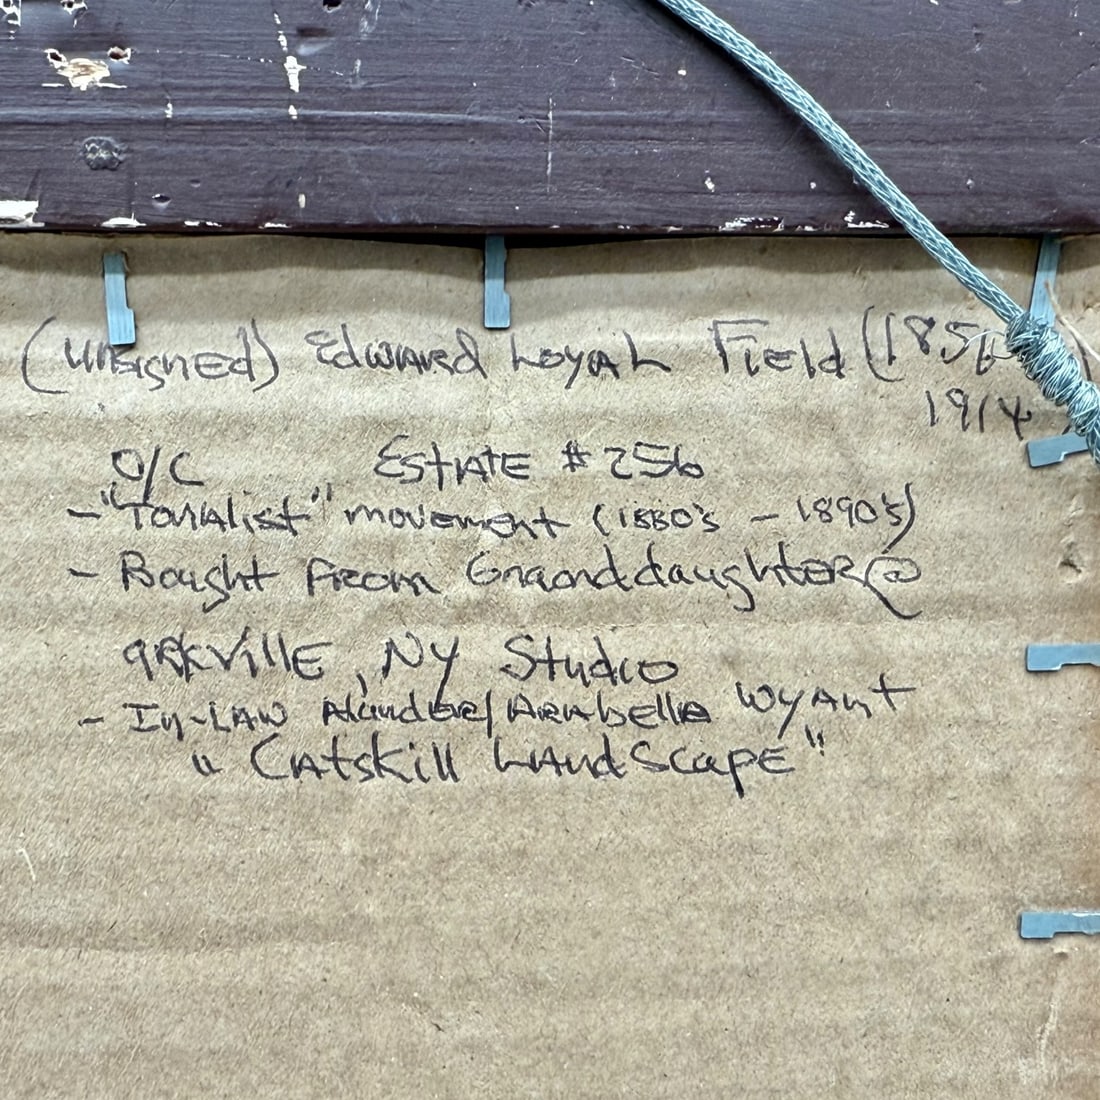 (unsigned) Edward Loyal Field (1856
1914)
O/C Estate # 256
- "Tonalist" movement (1880's - 1890's)
- Bought from Grandddaughter @
arkville, NY Studio
- In-Law /Arabella Wyant
"Catskill Landscape"